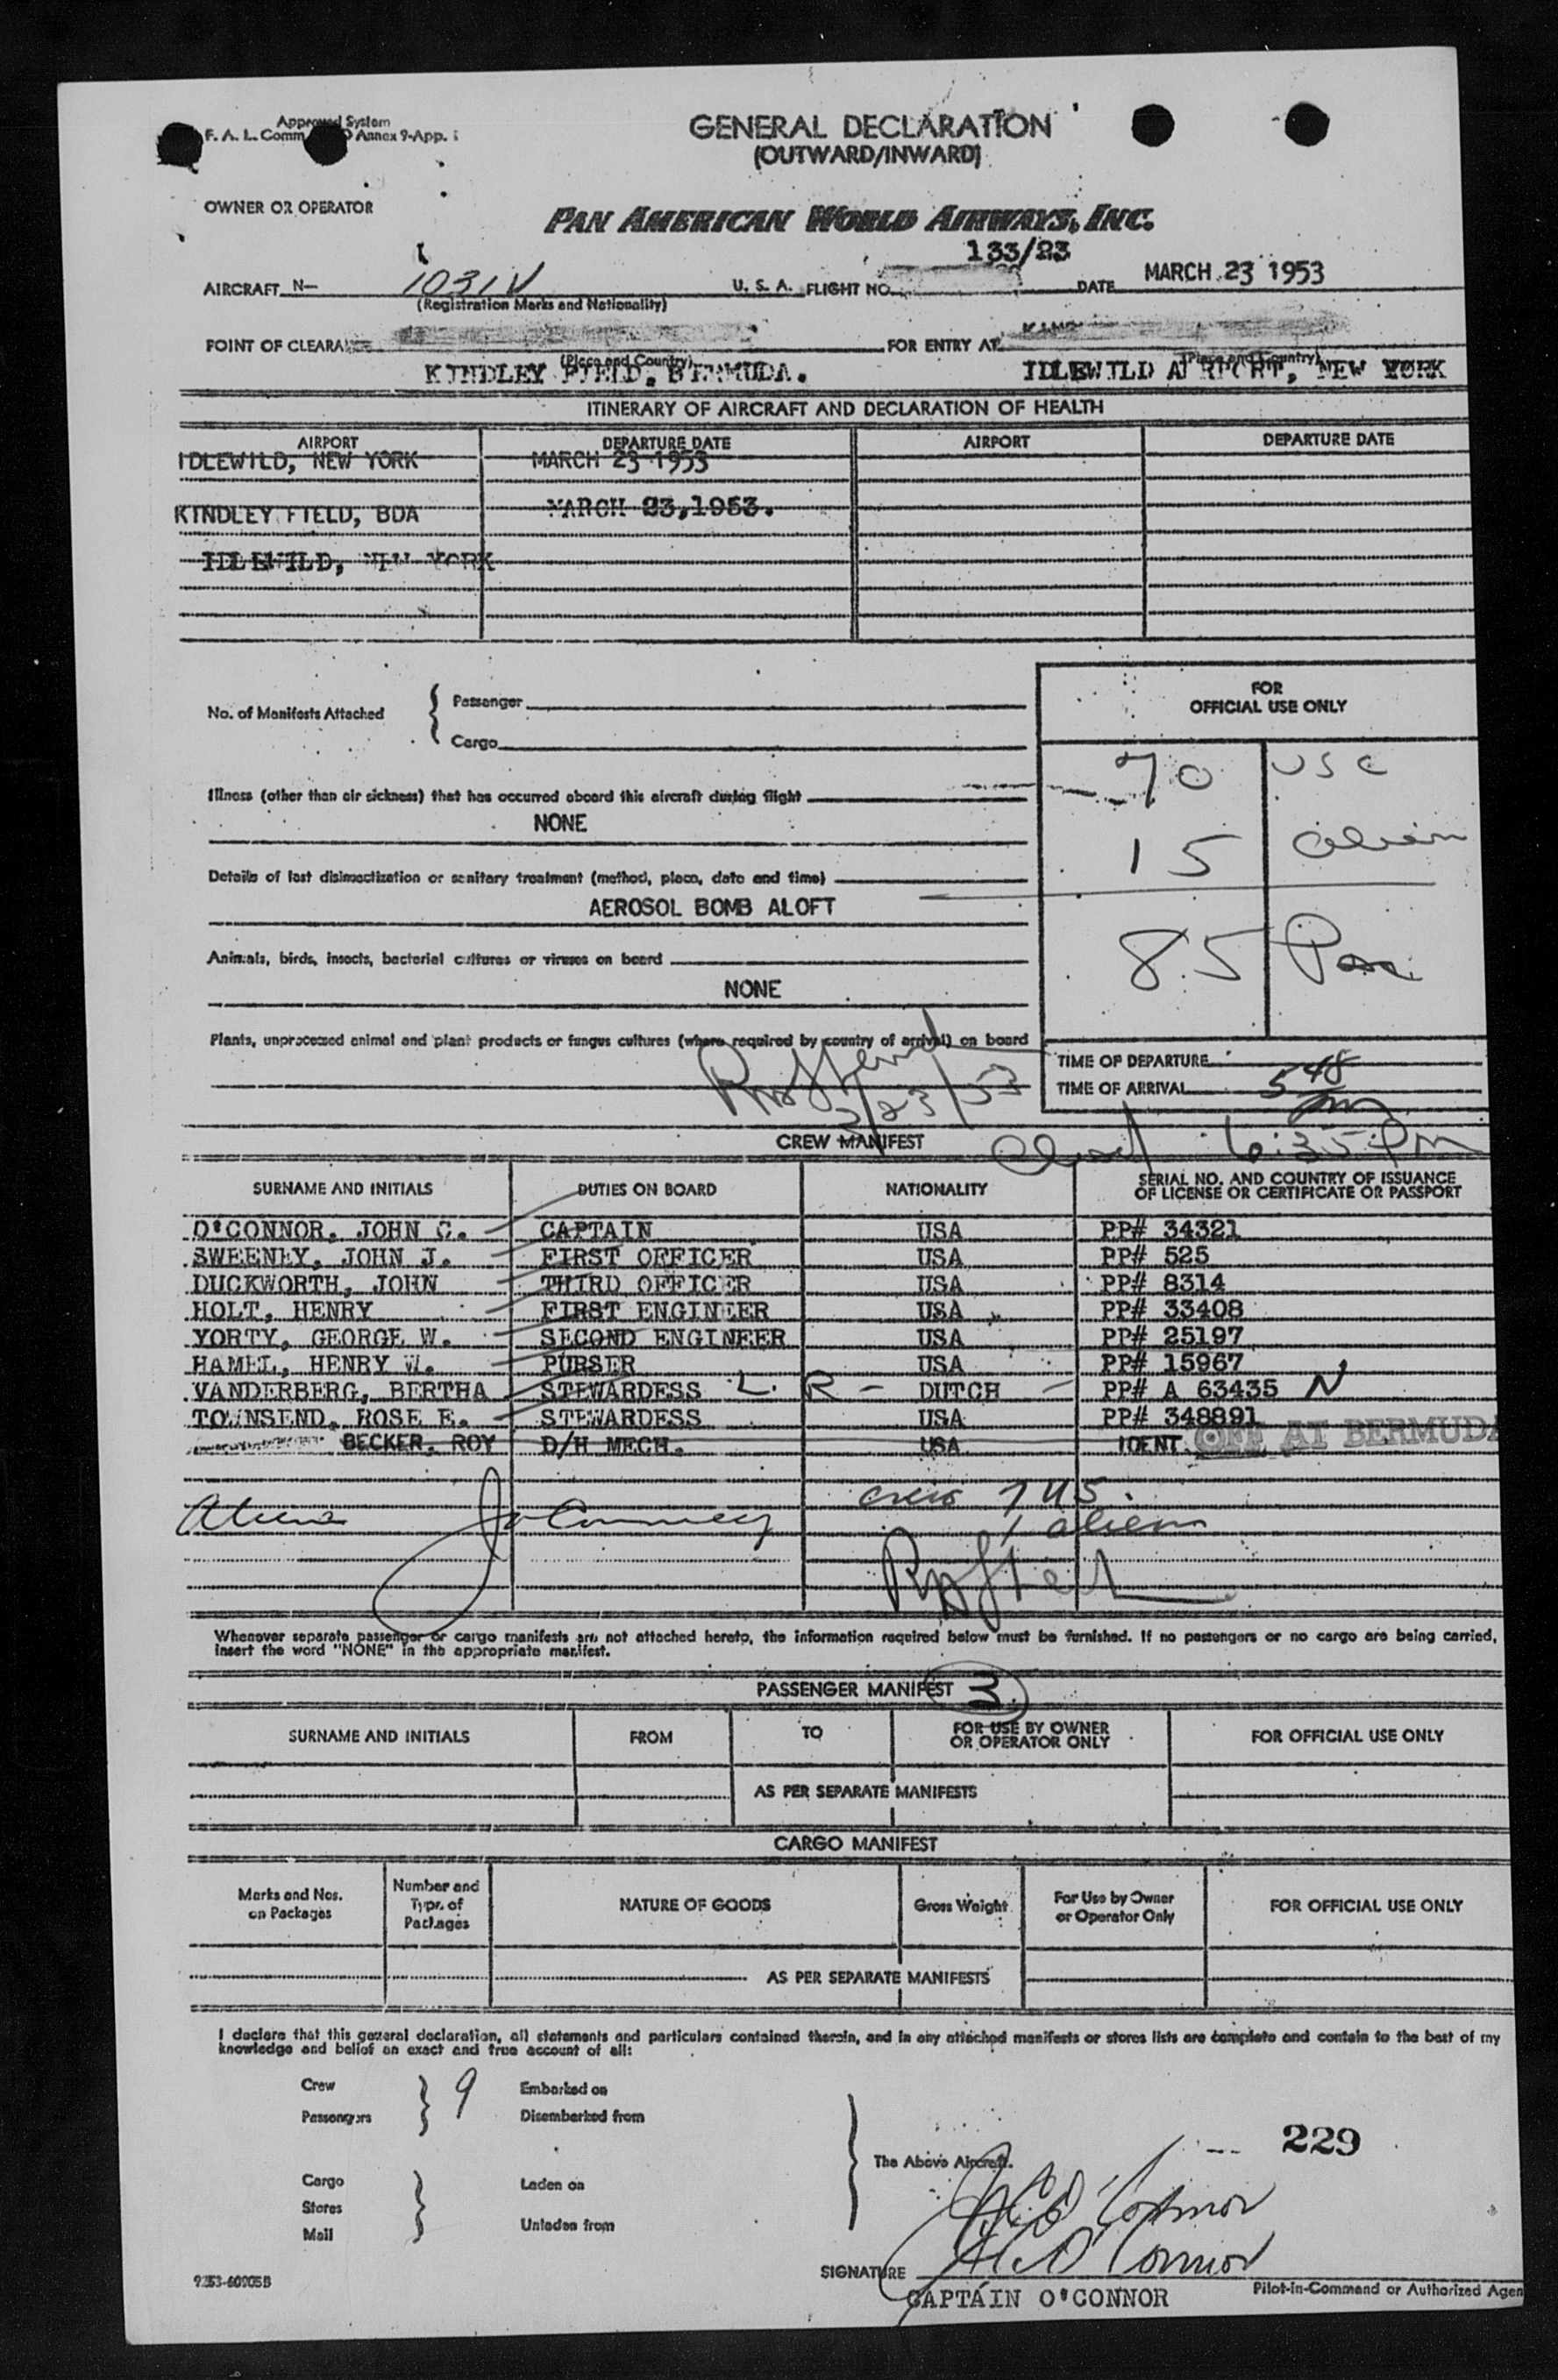 Approved System
F. A. L. Comm Annex 9-App. 1
GENERAL DECLARATION
(OUTWARD/INWARD)
OWNER OR OPERATOR
PAN AMERICAN WORLD AIRWAYS, INC.
133/23
AIRCRAFT N- 1031V U. S. A. FLIGHT NO. DATE MARCH 23 1953
(Registration Marks and Nationality)
POINT OF CLEARA FOR ENTRY AT
(Place and Country) (Place and Country)
KINDLEY FIELD, BERMUDA. IDLEWILD AIRPORT, NEW YORK
ITINERARY OF AIRCRAFT AND DECLARATION OF HEALTH
AIRPORT DEPARTURE DATE AIRPORT DEPARTURE DATE
IDLEWILD, NEW YORK MARCH 23 1953
KINDLEY FIELD, BDA MARCH 23, 1953.
IDLEWILD, NEW YORK
FOR
OFFICIAL USE ONLY
No. of Manifests Attached
Passenger
Cargo
70 USC
Illness (other than air sickness) that has occurred aboard this aircraft during flight
NONE
15 alien
Details of last disinsectization or sanitary treatment (method, place, date and time)
AEROSOL BOMB ALOFT
85 Pax
Animals, birds, insects, bacterial cultures or viruses on board
NONE
Plants, unprocessed animal and plant products or fungus cultures (where required by country of arrival) on board
3/23/53
TIME OF DEPARTURE
TIME OF ARRIVAL 5 48 pm
CREW MANIFEST
6:35 Pm
SURNAME AND INITIALS DUTIES ON BOARD NATIONALITY SERIAL NO. AND COUNTRY OF ISSUANCE
OF LICENSE OR CERTIFICATE OR PASSPORT
O'CONNOR, JOHN C. CAPTAIN USA PP# 34321
SWEENEY, JOHN J. FIRST OFFICER USA PP# 525
DUCKWORTH, JOHN THIRD OFFICER USA PP# 8314
HOLT, HENRY FIRST ENGINEER USA PP# 33408
YORTY, GEORGE W. SECOND ENGINEER USA PP# 25197
HAMEL, HENRY W. PURSER USA PP# 15967
VANDERBERG, BERTHA STEWARDESS L. R - DUTCH - PP# A 63435 N
TOWNSEND, ROSE E. STEWARDESS USA PP# 348891
BECKER, ROY D/H MECH. USA IDENT OFF AT BERMUDA
crew 7 US.
1 alien
Whenever separate passenger or cargo manifests are not attached hereto, the information required below must be furnished. If no passengers or no cargo are being carried,
insert the word "NONE" in the appropriate manifest.
PASSENGER MANIFEST 3
SURNAME AND INITIALS FROM TO FOR USE BY OWNER
OR OPERATOR ONLY FOR OFFICIAL USE ONLY
AS PER SEPARATE MANIFESTS
CARGO MANIFEST
Marks and Nos.
on Packages
Number and
Type of
Packages
NATURE OF GOODS
Gross Weight
For Use by Owner
or Operator Only
FOR OFFICIAL USE ONLY
AS PER SEPARATE MANIFESTS
I declare that this general declaration, all statements and particulars contained therein, and in any attached manifests or stores lists are complete and contain to the best of my
knowledge and belief an exact and true account of all:
Crew 9 Embarked on
Passengers Disembarked from
229
The Above Aircraft.
Cargo Laden on
Stores
Mail Unladen from
J C O'Connor
SIGNATURE J C O'Connor
9353-60905B
CAPTAIN O'CONNOR
Pilot-in-Command or Authorized Agen